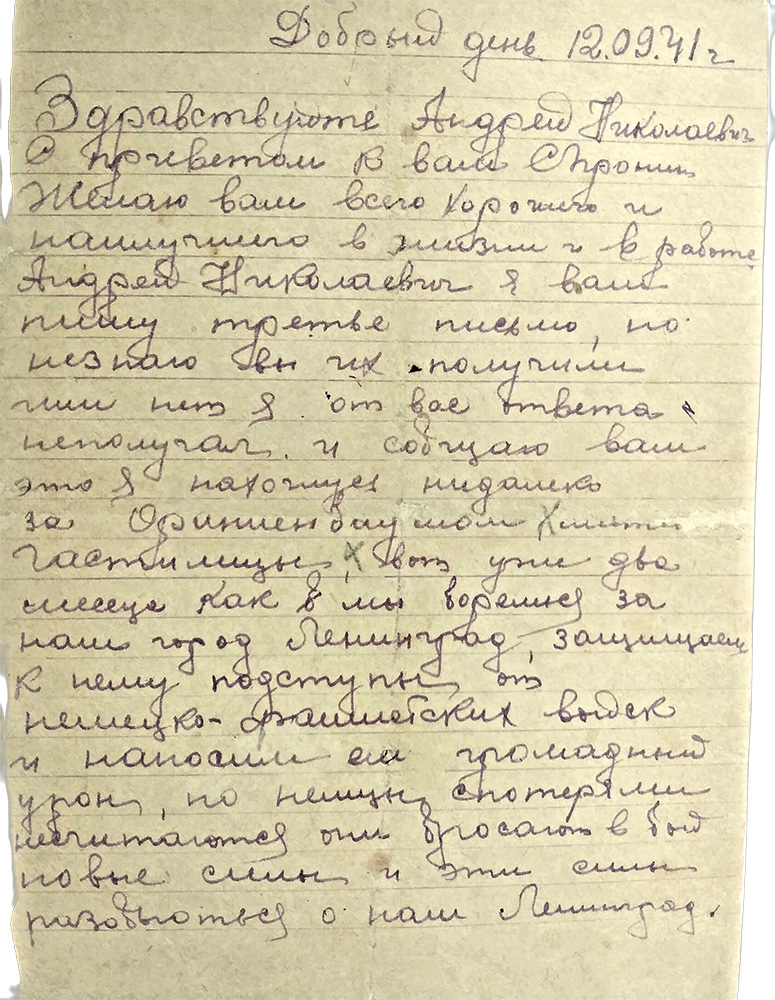 Добрый день 12.09.41 г
Здравствуйте Андрей Николаевич
С приветом к вам Спронин
Желаю вам всего хорошего и
наилучшего в жизни и в работе
Андрей Николаевич я вам
пишу третье письмо, но
незнаю вы их получили
или нет я от вас ответа
неполучал. и собщаю вам
это я нахожусь нидалеко
за Ориниенбаумом
Гастилицы, вот уже два
месеца как мы боремся за
наш город Ленинград, защищаем
к нему подступы от
немецко-фашистских войск
и наносим ему громадный
урон, но немцы спотерями
несчитаются они бросают в бой
новые силы и эти силы
разобьються о наш Ленинград.